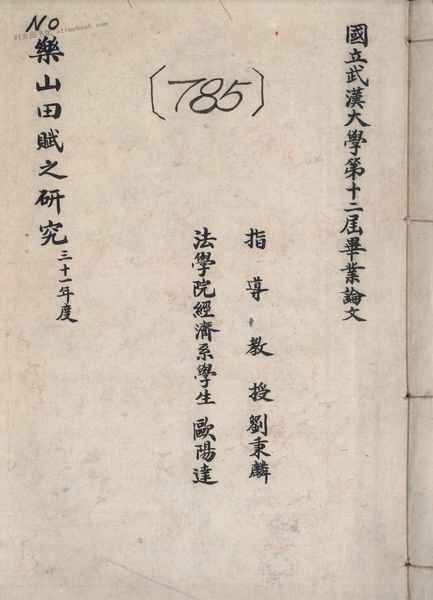 國立武漢大學第十二屆畢業論文
指導教授劉秉麟
法學院經濟系學生 歐陽達
〔785〕
NO
樂山田賦之研究 三十一年度